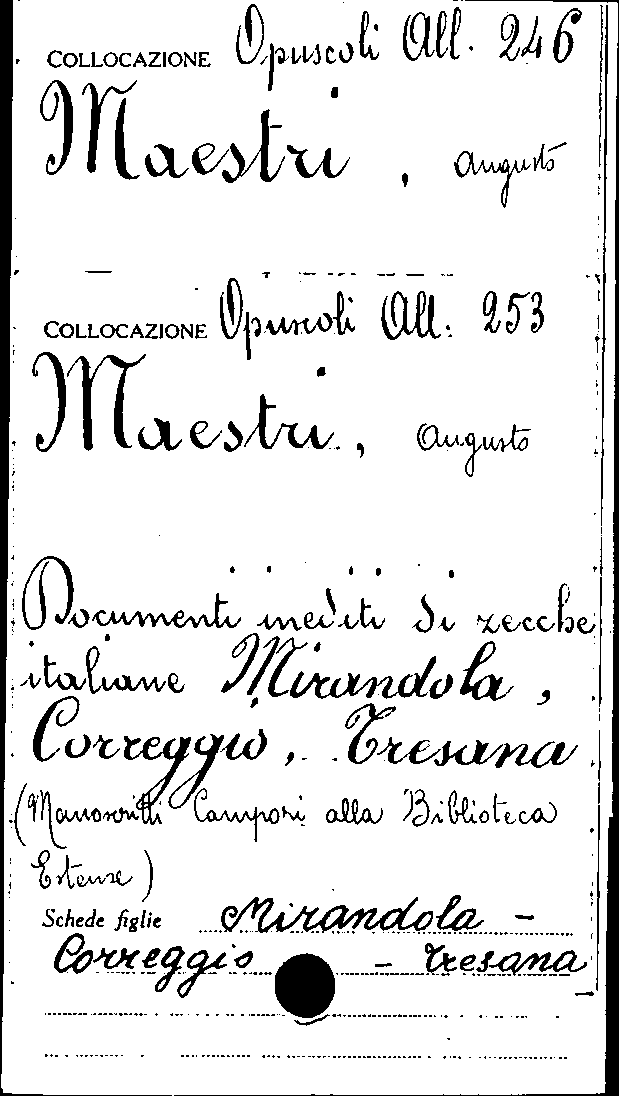 COLLOCAZIONE Opuscoli All. 246
Maestri, Augusto
COLLOCAZIONE Opuscoli All. 253
Maestri, Augusto
Documenti inediti di zecche
italiane Mirandola,
Correggio, Tresana
(Manoscritti Campori alla Biblioteca
Estense)
Schede figlie Mirandola -
Correggio - Tresana